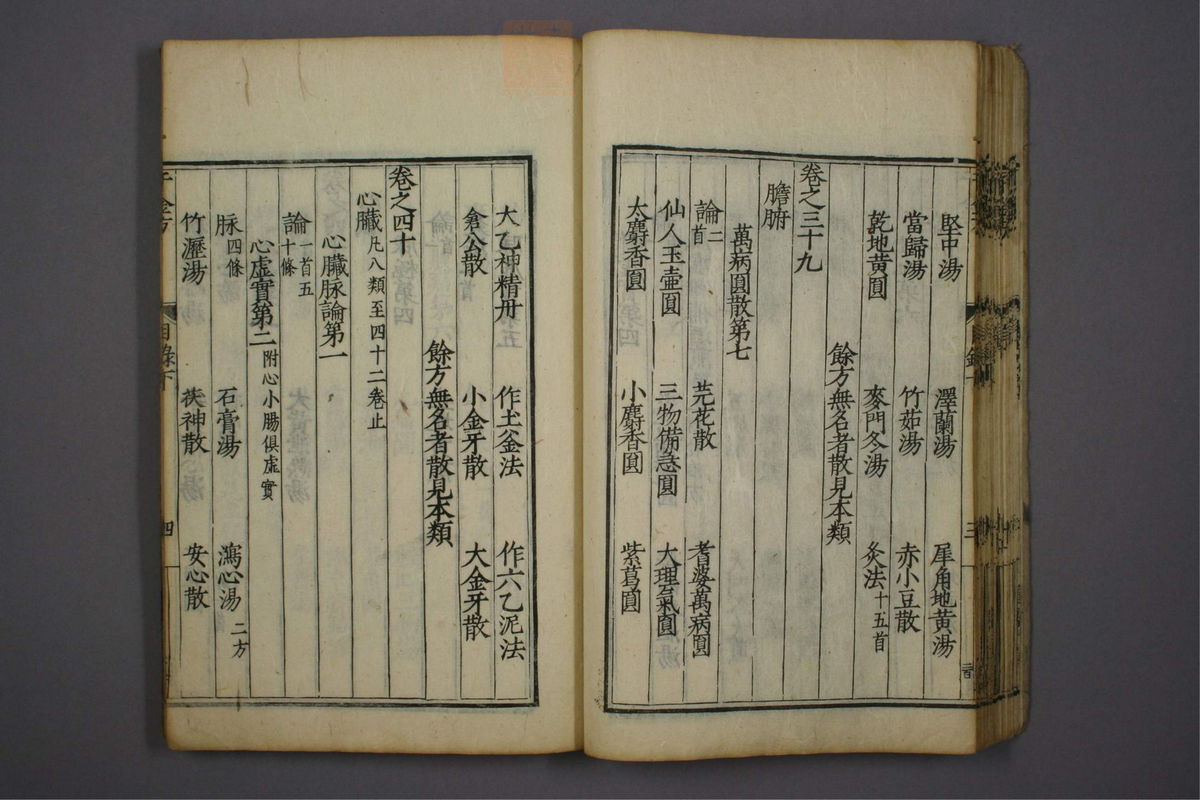 堅中湯 澤蘭湯 犀角地黃湯
當歸湯 竹茹湯 赤小豆散
乾地黃圓 麥門冬湯 灸法十五首
餘方無名者散見本類
卷之三十九
膽腑
萬病圓散第七
論二首 芫花散 耆婆萬病圓
仙人玉壺圓 三物備急圓 大理氣圓
太麝香圓 小麝香圓 紫葛圓
大乙神精丹 作土釜法 作六乙泥法
倉公散 小金牙散 大金牙散
餘方無名者散見本類
卷之四十
心臟凡八類至四十二卷止
心臟脉論第一
論一首五十條
心虛實第二附心小腸俱虛實
脉四條 石膏湯 瀉心湯二方
竹瀝湯 茯神散 安心散
千金方 目錄下 四